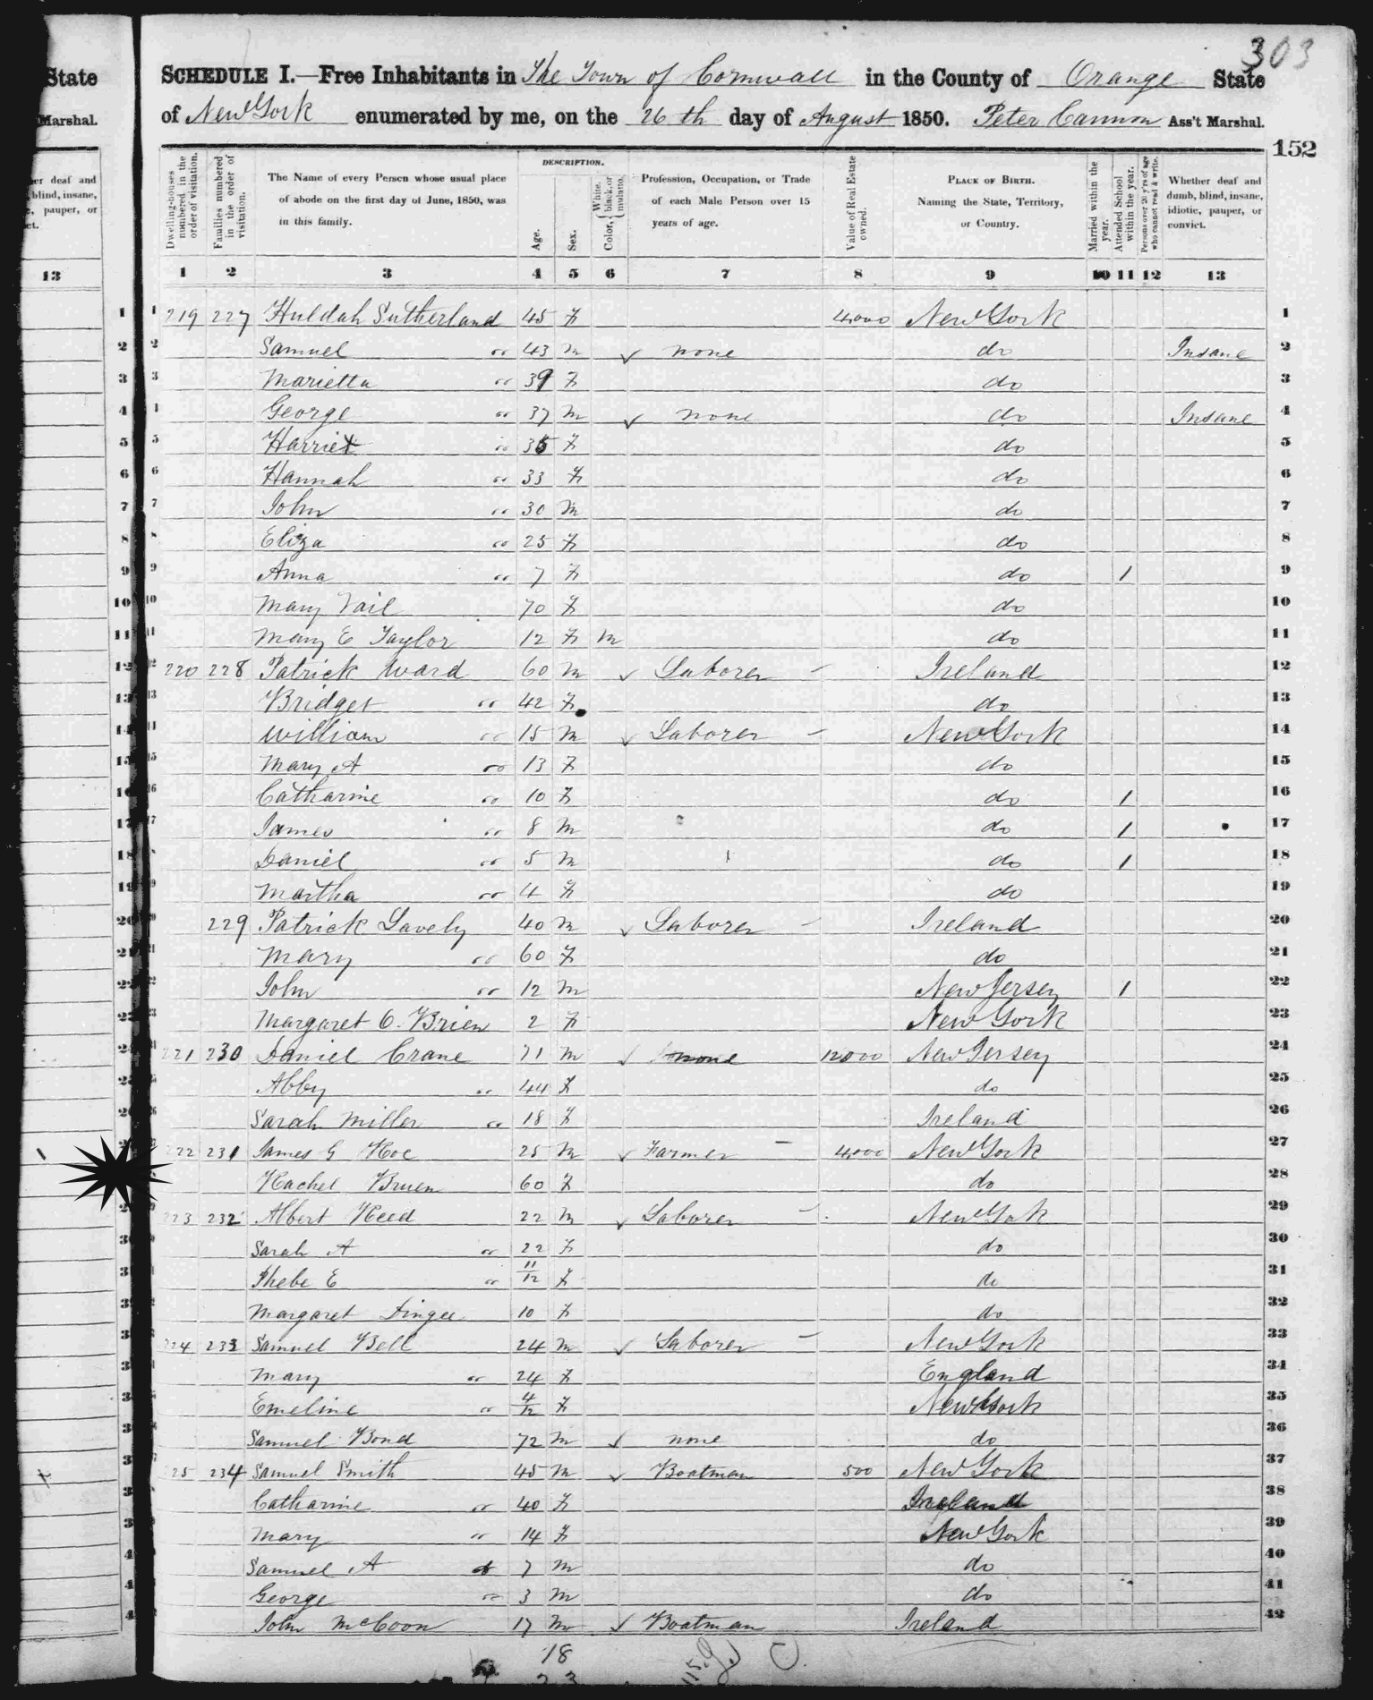 State
Marshal.
er deaf and
blind, insane,
pauper, or
ct.
13
303
SCHEDULE I.—Free Inhabitants in The Town of Cornwall in the County of Orange State
of New York enumerated by me, on the 26th day of August 1850. Peter Cannon Ass't Marshal.
152
Dwelling-houses numbered in the order of visitation.
Families numbered in the order of visitation.
The Name of every Person whose usual place of abode on the first day of June, 1850, was in this family.
DESCRIPTION.
Age.
Sex.
Color, White, black, or mulatto.
Profession, Occupation, or Trade of each Male Person over 15 years of age.
Value of Real Estate owned.
PLACE OF BIRTH. Naming the State, Territory, or Country.
Married within the year.
Attended School within the year.
Persons over 20 y'rs of age who cannot read & write.
Whether deaf and dumb, blind, insane, idiotic, pauper, or convict.
1 2 3 4 5 6 7 8 9 10 11 12 13
1 219 227 Huldah Sutherland 45 F 4000 New York 1
2 Samuel " 43 M ✓ none do Insane 2
3 Marietta " 39 F do 3
4 George " 37 M ✓ none do Insane 4
5 Harriet " 35 F do 5
6 Hannah " 33 F do 6
7 John " 30 M do 7
8 Eliza " 25 F do 8
9 Anna " 7 F do 1 9
10 Mary Vail 70 F do 10
11 Mary E Taylor 12 F M do 11
12 220 228 Patrick Ward 60 M ✓ Laborer – Ireland 12
13 Bridget " 42 F do 13
14 William " 15 M ✓ Laborer – New York 14
15 Mary A " 13 F do 15
16 Catharine " 10 F do 1 16
17 James " 8 M do 1 17
18 Daniel " 5 M do 1 18
19 Martha " 4 F do 19
20 229 Patrick Lavely 40 M ✓ Laborer – Ireland 20
21 Mary " 60 F do 21
22 John " 12 M New Jersey 1 22
23 Margaret O. Brien 2 F New York 23
24 221 230 Daniel Crane 71 M ✓ none 12000 New Jersey 24
25 Abby " 44 F do 25
26 Sarah Miller " 18 F Ireland 26
27 222 231 James G Roe 25 M ✓ Farmer – 4000 New York 27
28 Rachel Bruen 60 F do 28
29 223 232 Albert Reed 22 M ✓ Laborer – New York 29
30 Sarah A " 22 F do 30
31 Phebe E " 11/12 F do 31
32 Margaret Dingee 10 F do 32
33 224 233 Samuel Bell 24 M ✓ Laborer – New York 33
34 Mary " 24 F England 34
35 Emeline " 4/12 F New York 35
36 Samuel Bond 72 M ✓ none do 36
37 225 234 Samuel Smith 45 M ✓ Boatman 500 New York 37
38 Catharine " 40 F Ireland 38
39 Mary " 14 F New York 39
40 Samuel A " 7 M do 40
41 George " 3 M do 41
42 John McCoon 17 M ✓ Boatman Ireland 42
18
23